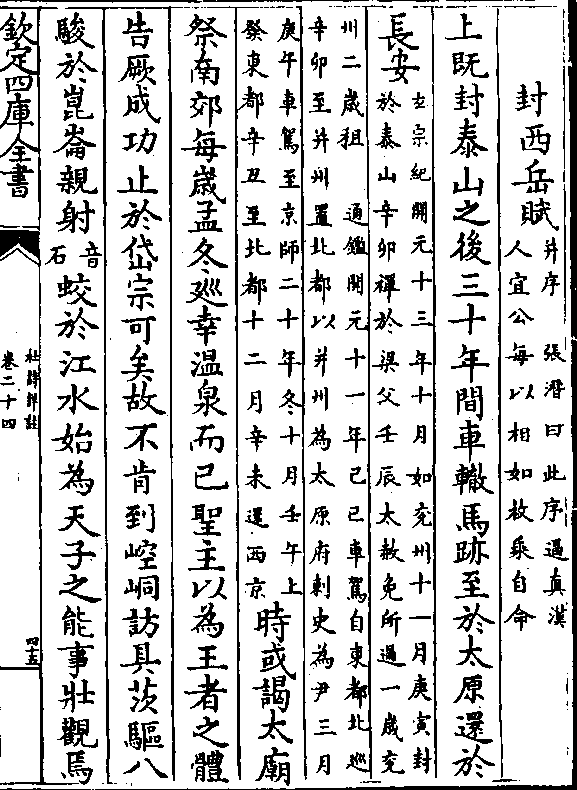 封西岳賦
并序　張溍曰此序逼真漢
人宜公每以相如枚乘自命
上既封泰山之後三十年間車轍馬跡至於太原還於
長安
玄宗紀開元十三年十月如兗州十一月庚寅封
於泰山辛卯禪於梁父壬辰太赦免所過一歲兗
州二歲租　通鑑開元十一年己巳車駕自東都北巡
辛卯至并州置北都以并州為太原府刺史為尹三月
庚午車駕至京師二十年冬十月壬午上
發東都辛丑至北都十二月辛未還西京
時或謁太廟
祭南郊每歲孟冬廵幸温泉而已聖主以為王者之體
告厥成功止於岱宗可矣故不肯到崆峒訪具茨驅八
駿於崑崙親射
音
石
蛟於江水始為天子之能事壯觀焉
欽定四庫全書
杜詩詳註
卷二十四
四五